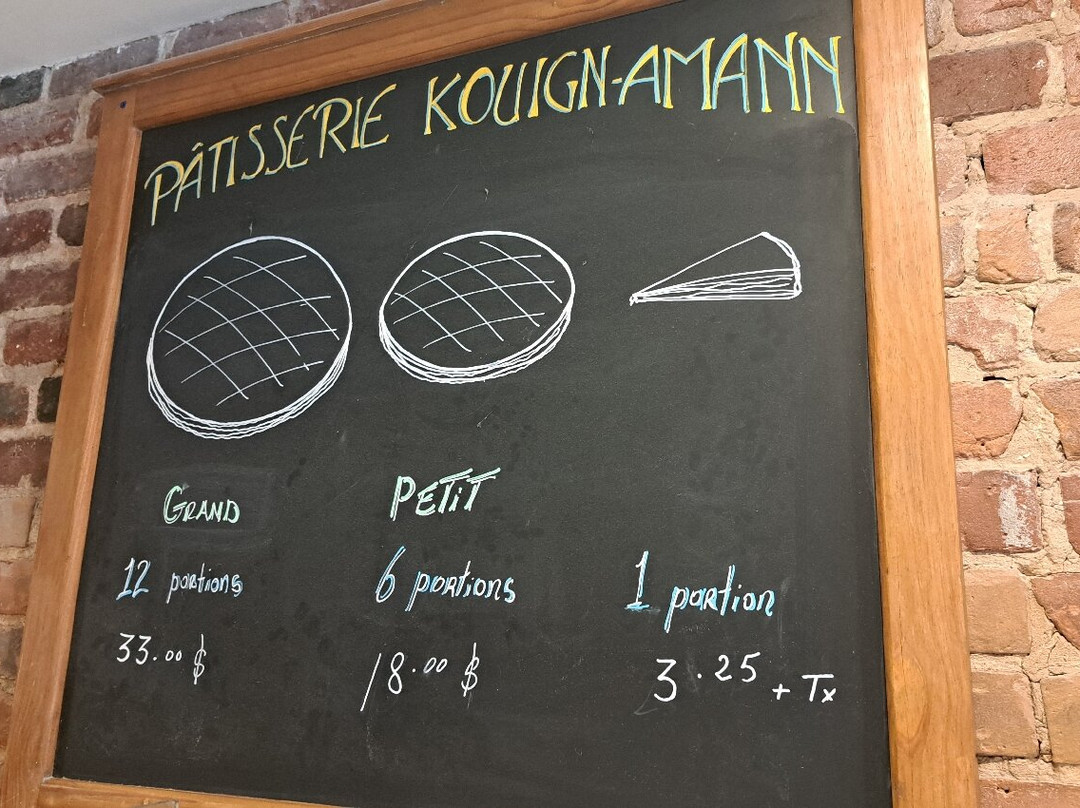 PÂTISSERIE KOUIGN-AMANN
GRAND
12 portions
33.00 $
PETIT
6 portions
18.00 $
1 portion
3.25 + Tx